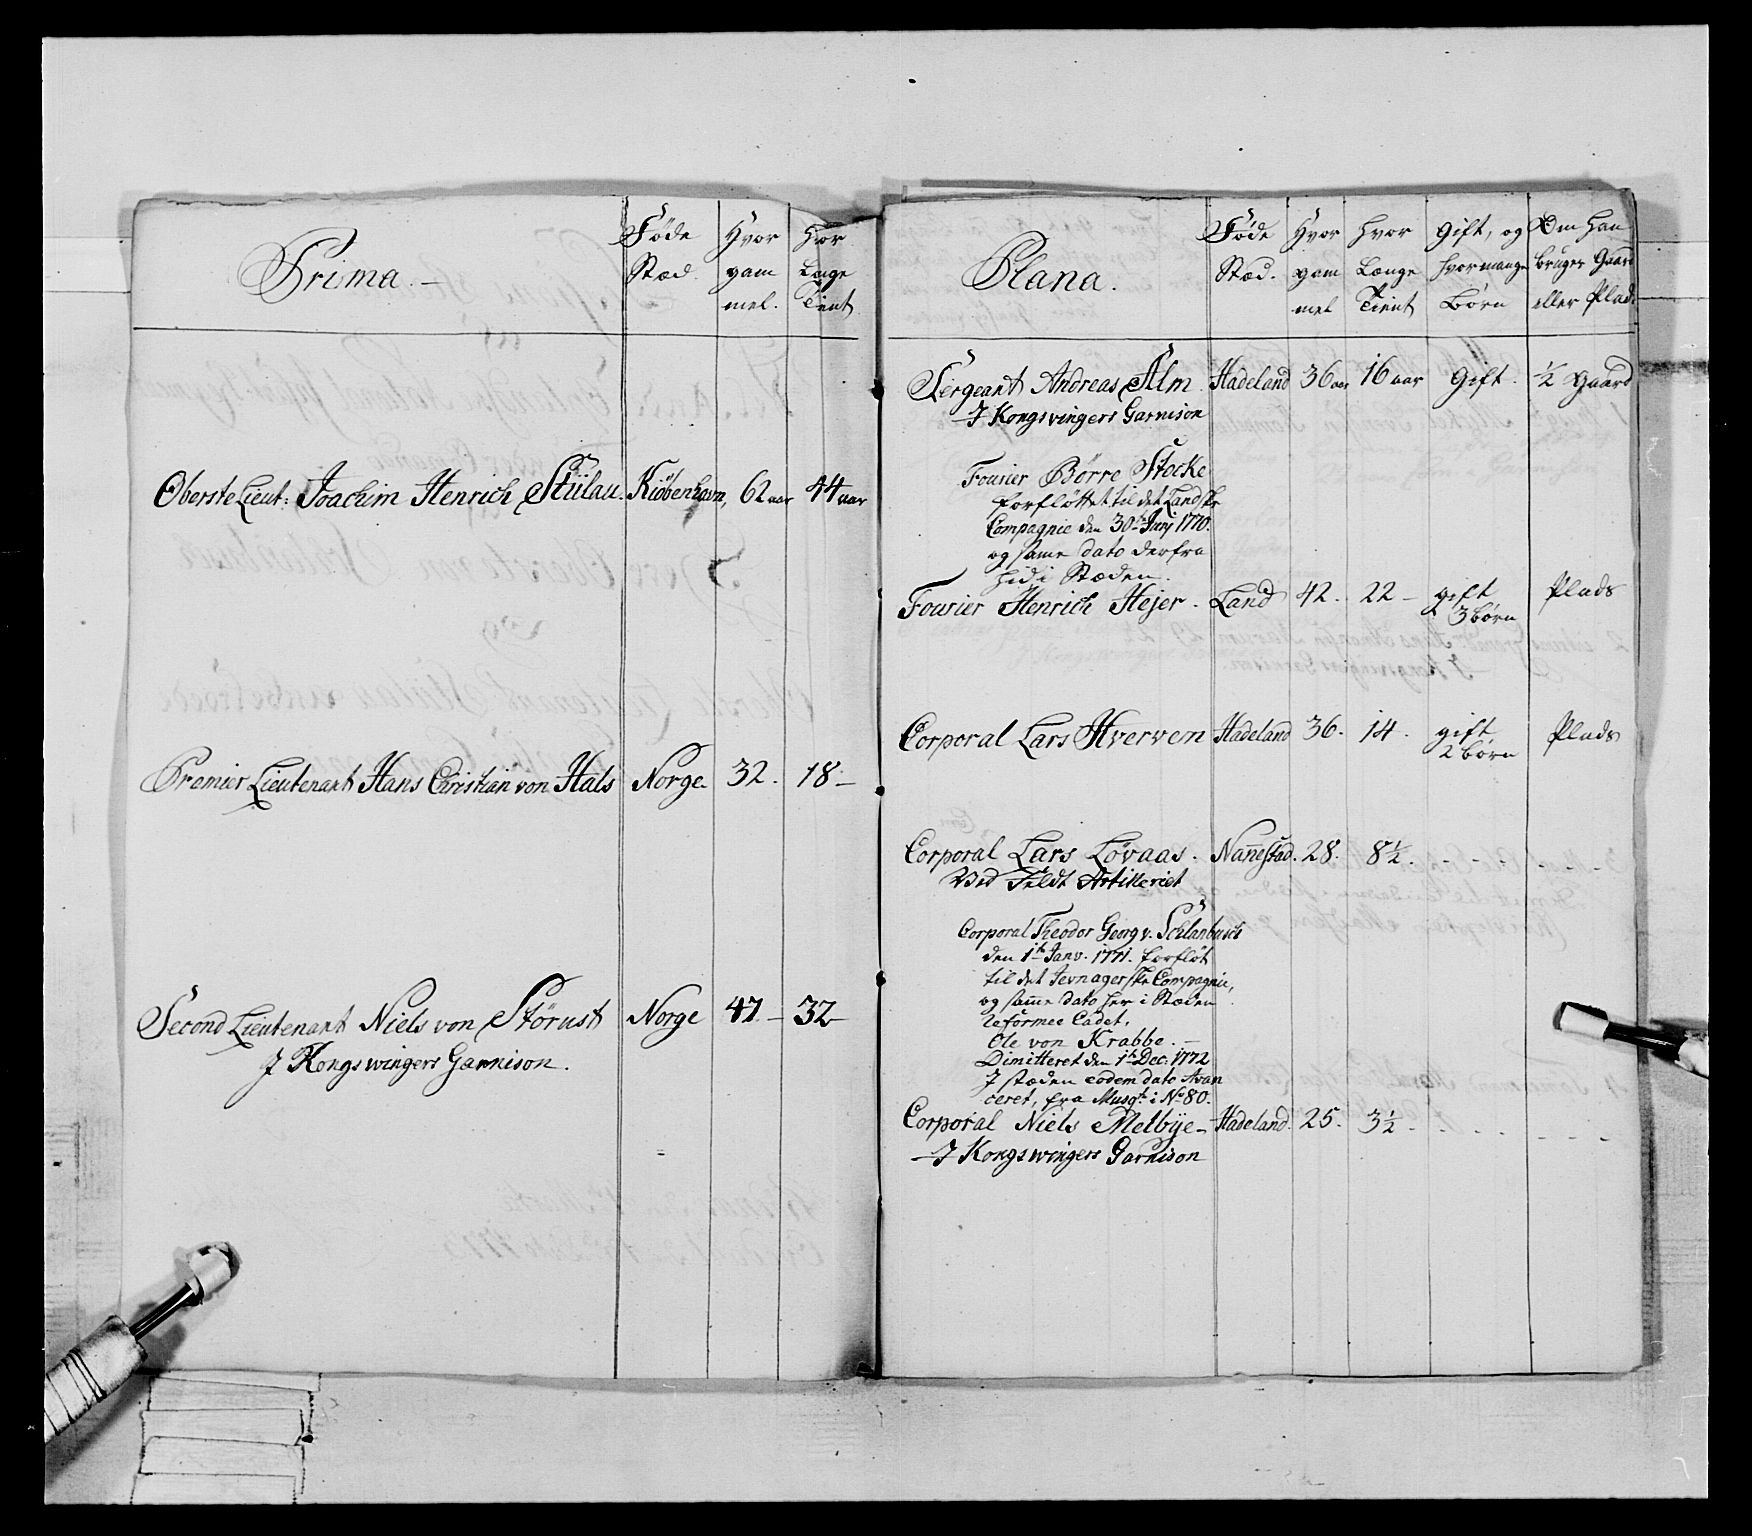 Prima.
Føde Stæd
Hvor gam mel.
Hvor Længe Tient
Oberste Lieut: Joachim Henrich Stülau. Kiöbenhavn, 62 aar 44 aar
Premier Lieutenant Hans Christian von Hals Norge 32. 18 –
Second Lieutenant Niels von Störust Norge 47. – 32 –
J Kongswingers Garnison.
Plana.
Føde Stæd.
Hvor gam mel
Hvor Længe Tient
Gift, og hvormange Børn
Om han bruger Gaard eller Plads
Sergeant Andreas Alm Hadeland 36 aar 16 aar Gift. ½ Gaard
J Kongsvingers Garnison
Fourier Börre Stocke
forfløttet til det Landske
Compagnie den 30te Junj 1770.
og samme dato derfra
hid i Stæden.
Fourier Henrich Hejer. Land 42. 22 – gift Plads
3 børn
Corporal Lars Hverven Hadeland 36. 14. gift Plads
2 børn
Corporal Lars Løvaas. Nannestad. 28. 8½.
Ved Feldt Artilleriet
Corporal Theodor Georg v. Schlanbusch
den 1te Janv. 1771. forfløt
til det Jevnagerske Compagnie,
og samme dato her i Stæden
Reformee Cadet,
Ole von Krabbe. –
Dimitteret den 1te Dec. 1772
J stæden eodem dato Avan
ceret, fra Musqt. i No 80.
Corporal Niels Melbÿe – Hadeland. 25. 3½
J Kongswingers Garnison